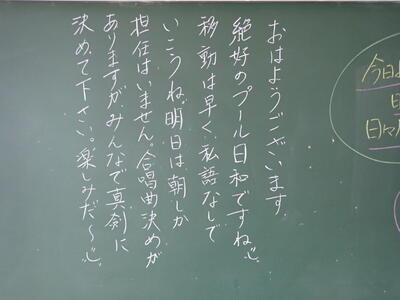 おはようございます
絶好のプール日和ですね
移動は早く、私語なしで
いこうね。明日は朝しか
担任はいません。合唱曲決めが
ありますがみんなで真剣に
決めて下さい。楽しみだ〜
今日
日々